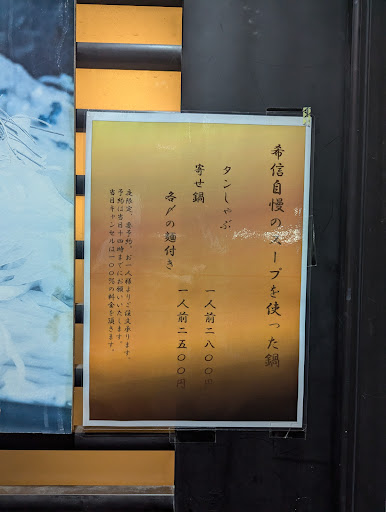 希信自慢のスープを使った鍋
タンしゃぶ
一人前二八〇〇円
寄せ鍋
一人前二五〇〇円
各〆の麺付き
夜限定、要予約、お一人様よりご注文承ります。
予約は当日十四時までにお願いいたします。
当日キャンセルは一〇〇%の料金を頂きます。